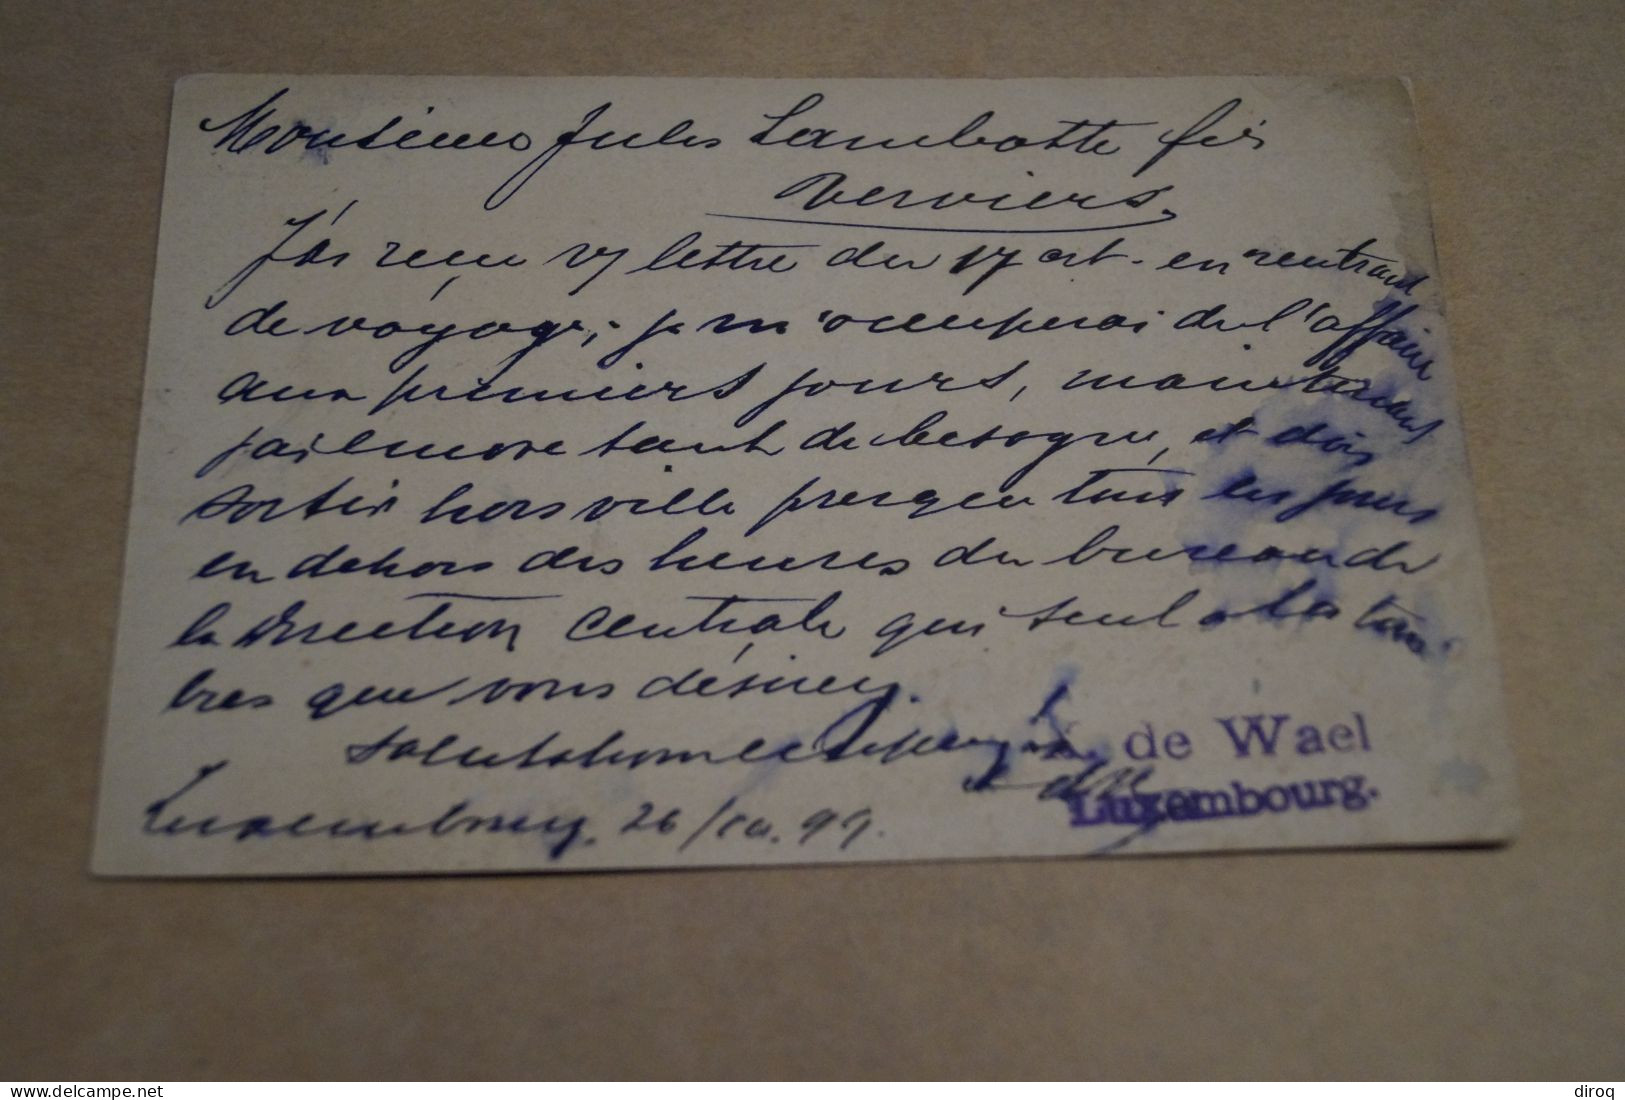 Monsieur Jules Lambotte fils
Verviers.
J'ai reçu vs lettre du 17 ct. en rentrant
de voyage; je m'occuperai de l'affaire
aux premiers jours, maintenant
j'ai encore tant de besogne, et dois
sortir hors ville presque tous les jours
en dehors des heures du bureau de
la direction centrale qui seul a les tim
bres que vous désirez.
Salutations
K. de Wael
Luxembourg.
Luxembourg, 26/10.99.
www.delcampe.net
diroq